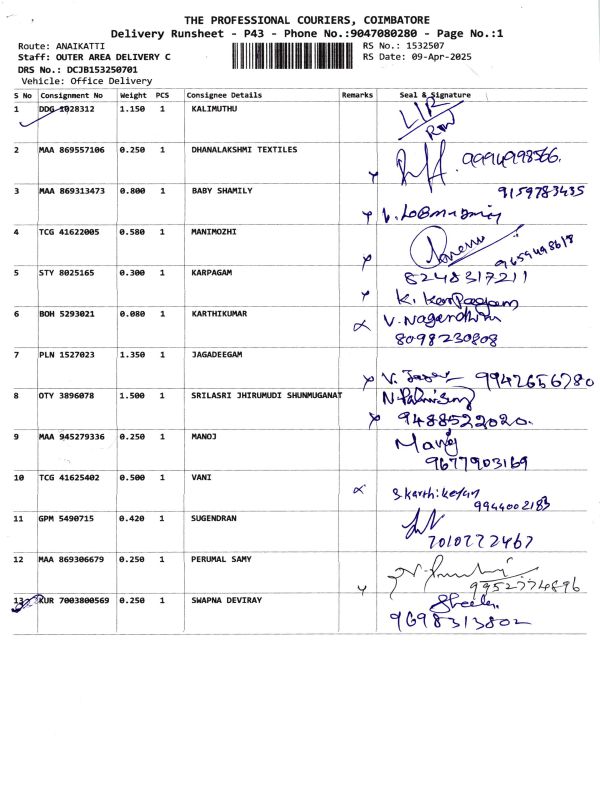 THE PROFESSIONAL COURIERS, COIMBATORE
Delivery Runsheet - P43 - Phone No.:9047080280 - Page No.:1
Route: ANAIKATTI RS No.: 1532507
Staff: OUTER AREA DELIVERY C RS Date: 09-Apr-2025
DRS No.: DCJB153250701
Vehicle: Office Delivery
S No Consignment No Weight PCS Consignee Details Remarks Seal & Signature
1 DDG 1028312 1.150 1 KALIMUTHU
2 MAA 869557106 0.250 1 DHANALAKSHMI TEXTILES 9994998566.
3 MAA 869313473 0.800 1 BABY SHAMILY 9159783435
4 TCG 41622005 0.580 1 MANIMOZHI 9659498618
5 STY 8025165 0.300 1 KARPAGAM 8248317211
K. Karpagam
6 BOH 5293021 0.080 1 KARTHIKUMAR
8098230808
7 PLN 1527023 1.350 1 JAGADEEGAM
9942656780
8 OTY 3896078 1.500 1 SRILASRI JHIRUMUDI SHUNMUGANAT
9488522020.
9 MAA 945279336 0.250 1 MANOJ Manoj
9677903169
10 TCG 41625402 0.500 1 VANI S.karthikeyan
9944002183
11 GPM 5490715 0.420 1 SUGENDRAN
7010772467
12 MAA 869306679 0.250 1 PERUMAL SAMY
9952774896
13 KUR 7003800569 0.250 1 SWAPNA DEVIRAY
9698313802